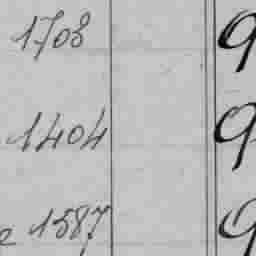 1708 9
1404 9
e 1587 9